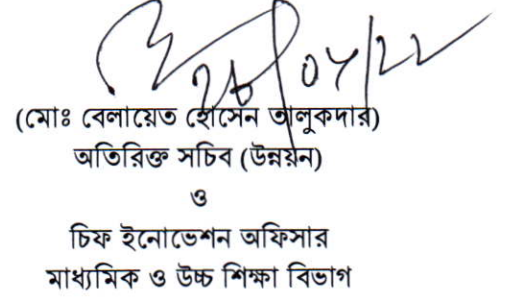 ২৮/০৮/২২
(মোঃ বেলায়েত হোসেন তালুকদার)
অতিরিক্ত সচিব (উন্নয়ন)
ও
চিফ ইনোভেশন অফিসার
মাধ্যমিক ও উচ্চ শিক্ষা বিভাগ